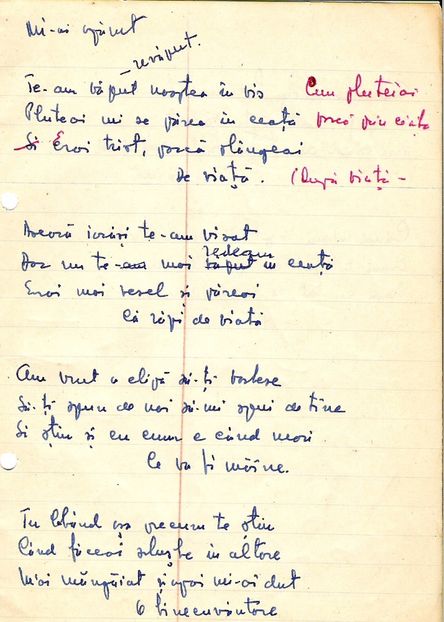 Mi-ai apărut
– revăzut.
Te-am văzut noaptea în vis Cum pluteiai
Pluteai mi se părea în ceață parcă prin ceața
Și Erai trist, parcă plângeai
De viață. (După viață –
Aseară iarăși te-am visat
Dar nu te-am mai văzut în ceață
Erai mai vesel și păreai
Că râzi de viată
Am vrut o clipă să-ți vorbesc
Să-ți spun de noi să-mi spui de tine
Să știu și eu cum e când mori
Ce va fi mâine.
Tu blând așa precum te știu
Când făceai slujbe în altare
M-ai mângâiat și apoi mi-ai dat
O binecuvântare